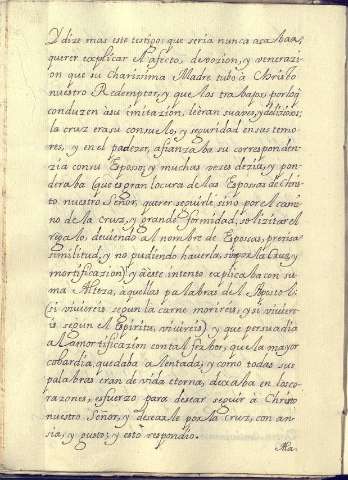 Y dize mas este testigo; que seria nunca acabar,
querer explicar el afecto, devozion, y venerazi
on que su Charissima Madre tubo à Christo
nuestro Redemptor, y que los trabajos, por los q
conduzen à su imitazion, le eran suaves, y deliziosos;
la cruz era su consuelo, y seguridad en sus temo
res, y en el padezer, afianzaba su corresponden
zia con su Esposo; y muchas veses dezia, y pon
deraba (que es gran locura de las Esposas de Chris
to nuestro Señor, querer seguirle sino por el cami
no de la Cruz, y grande formidad, solizitar el
regalo, deviendo al nombre de Esposas, precisa
similitud, y no pudiendo haverla, sino por la Cruz, y
mortificazion) y à este intento explicaba con su
ma Alteza, aquellas palabras de el Apostol:
(si viviereis segun la carne morireis, y si vivier
eis segun el Espiritu, vivireis) y que persuadia
a la mortificazion con tal ferbor, que la mayor
cobardia, quedaba alentada; y como todas sus
palabras eran de vida eterna, dexaba en los co
razones, esfuerzo para desear seguir à Christo
nuestro Señor, y desearle por la cruz, con an
sia, y gusto; y esto respondio.